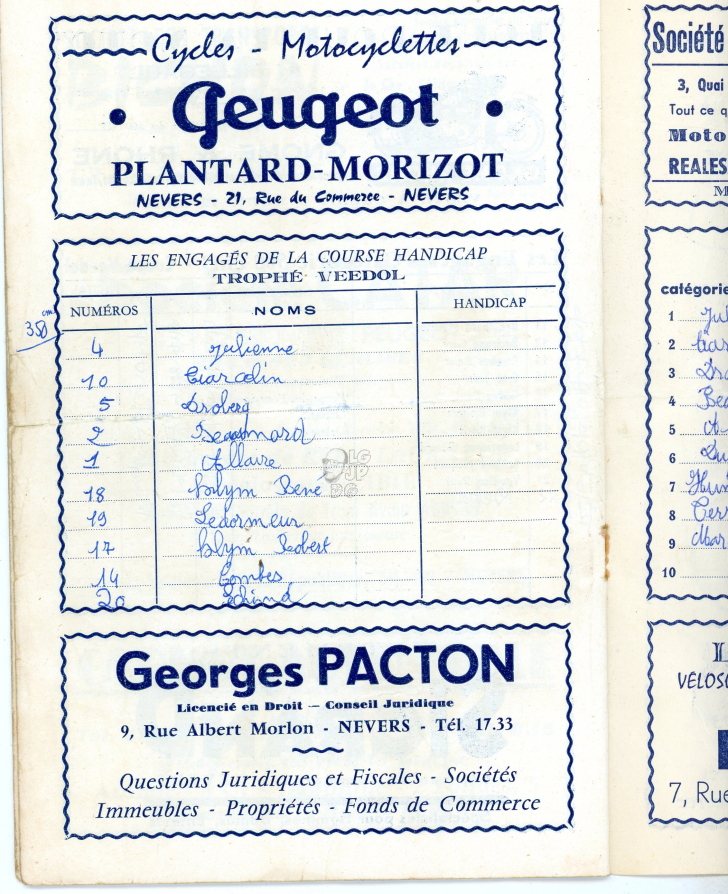 Cycles - Motocyclettes
• Peugeot •
PLANTARD-MORIZOT
NEVERS - 21, Rue du Commerce - NEVERS
LES ENGAGÉS DE LA COURSE HANDICAP
TROPHÉ VEEDOL
NUMÉROS NOMS HANDICAP
350 cm
4 Julienne
10
5 Droberg
2
1 Allaire
18 Klym René
19 Ledormeur
17 Klym Robert
14 Combes
20
Georges PACTON
Licencié en Droit — Conseil Juridique
9, Rue Albert Morlon - NEVERS - Tél. 17.33
Questions Juridiques et Fiscales - Sociétés
Immeubles - Propriétés - Fonds de Commerce
Société
3, Quai
Tout ce q
Moto
REALES
M
catégorie
1 Jul
2
3 Dro
4 Bea
5 A
6
7
8
9 Mar
10
VÉLOSO
7, Rue